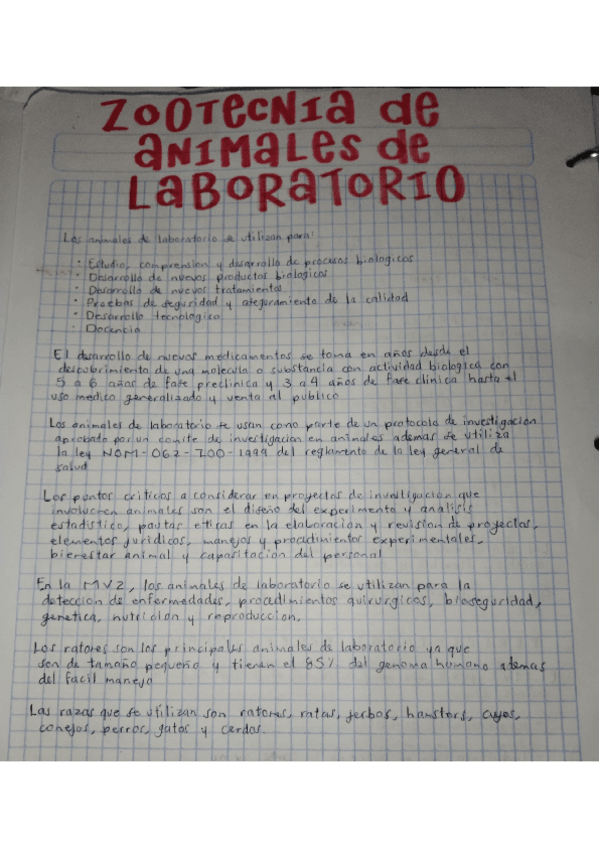 ZOOTECNIA de
ANIMALES de
LABORATORIO
Los animales de laboratorio se utilizan para:
• Estudio, comprension y desarrollo de procesos biologicos
• Desarrollo de nuevos productos biologicos
• Desarrollo de nuevos tratamientos
• Pruebas de seguridad y aseguramiento de la calidad
• Desarrollo tecnologico
• Docencia
El desarrollo de nuevos medicamentos se toma en años desde el
descubrimiento de una molecula o substancia con actividad biologica con
5 a 6 años de fase preclinica y 3 a 4 años de fase clinica hasta el
uso medico generalizado y venta al publico
Los animales de laboratorio se usan como parte de un protocolo de investigacion
aprobado por un comite de investigacion en animales ademas se utiliza
la ley NOM-062-ZOO-1999 del reglamento de la ley general de
salud
Los puntos criticos a considerar en proyectos de investigacion que
involucren animales son el diseño del experimento y analisis
estadistico, pautas eticas en la elaboracion y revision de proyectos,
elementos juridicos, manejos y procedimientos experimentales,
bienestar animal y capacitacion del personal
En la MVZ, los animales de laboratorio se utilizan para la
deteccion de enfermedades, procedimientos quirurgicos, bioseguridad,
genetica, nutricion y reproduccion.
Los ratones son los principales animales de laboratorio ya que
son de tamaño pequeño y tienen el 85% del genoma humano ademas
del facil manejo
Las razas que se utilizan son ratones, ratas, jerbos, hamsters, cuyos,
conejos, perros, gatos y cerdos.